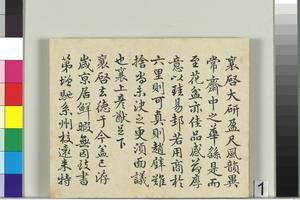 襄啓大研盈尺風韻異
常齋中之華繇是而
至花盆亦佳品感荷厚
意以珪易邵若用商於
六里則可真則趙璧難
捨尚未決之更須面議
也襄上彥猷足下
襄啓去德于今盖已浮
歲京居鮮暇無因致書
第增馳系州校遠來特
1